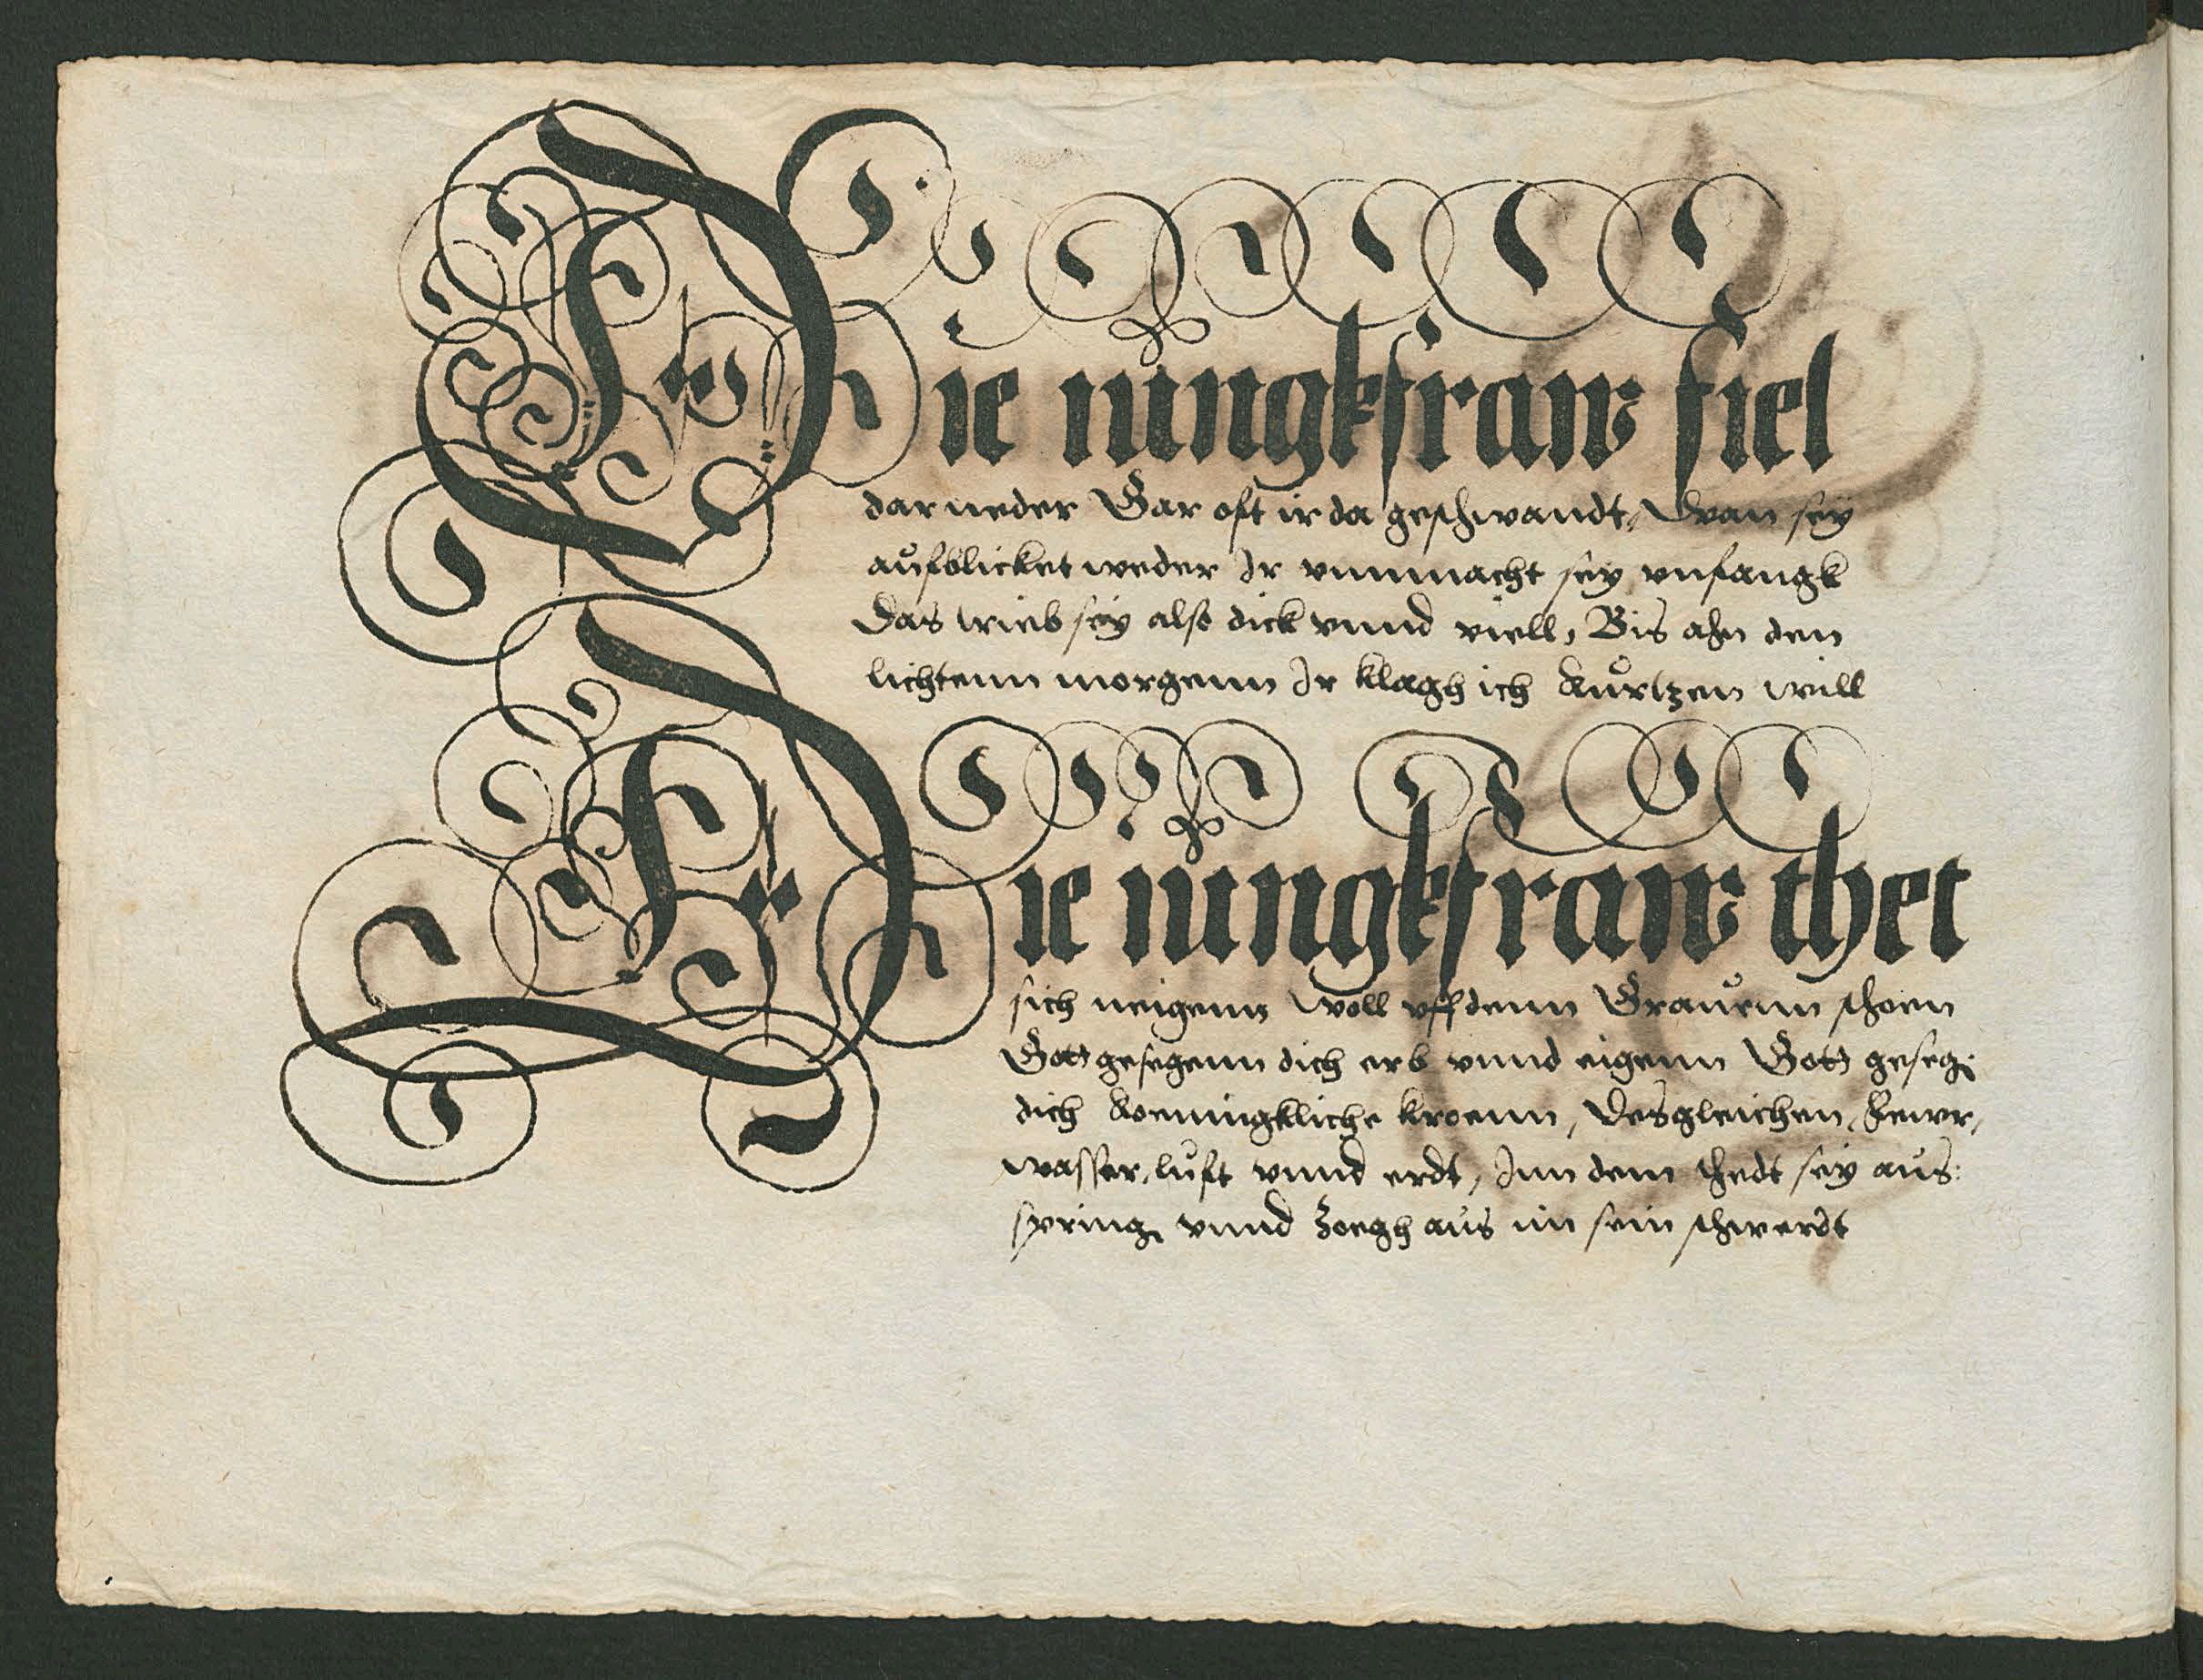 Die iungkfraw fiel
dar neder Gar oft ir da geschwandt, Wan sey
aufblicket weder Ir vnmacht sey vnfangk
Das trieb sey also dick vnnd viell, Bis ahn den
lichtenn morgenn Ir klagh ich kurtzen will
Die iungkfraw thet
sich neigenn woll vff denn Grauenn schoen
Gott gesegenn dich erb vnnd eigenn Gott geseg:
dich koeningkliche kroenn, Desgleichen, Fewr,
wasser, luft vnnd erdt, Inn dem thedt sey aus:
spring vnnd Zoegh aus im sein schwerdt